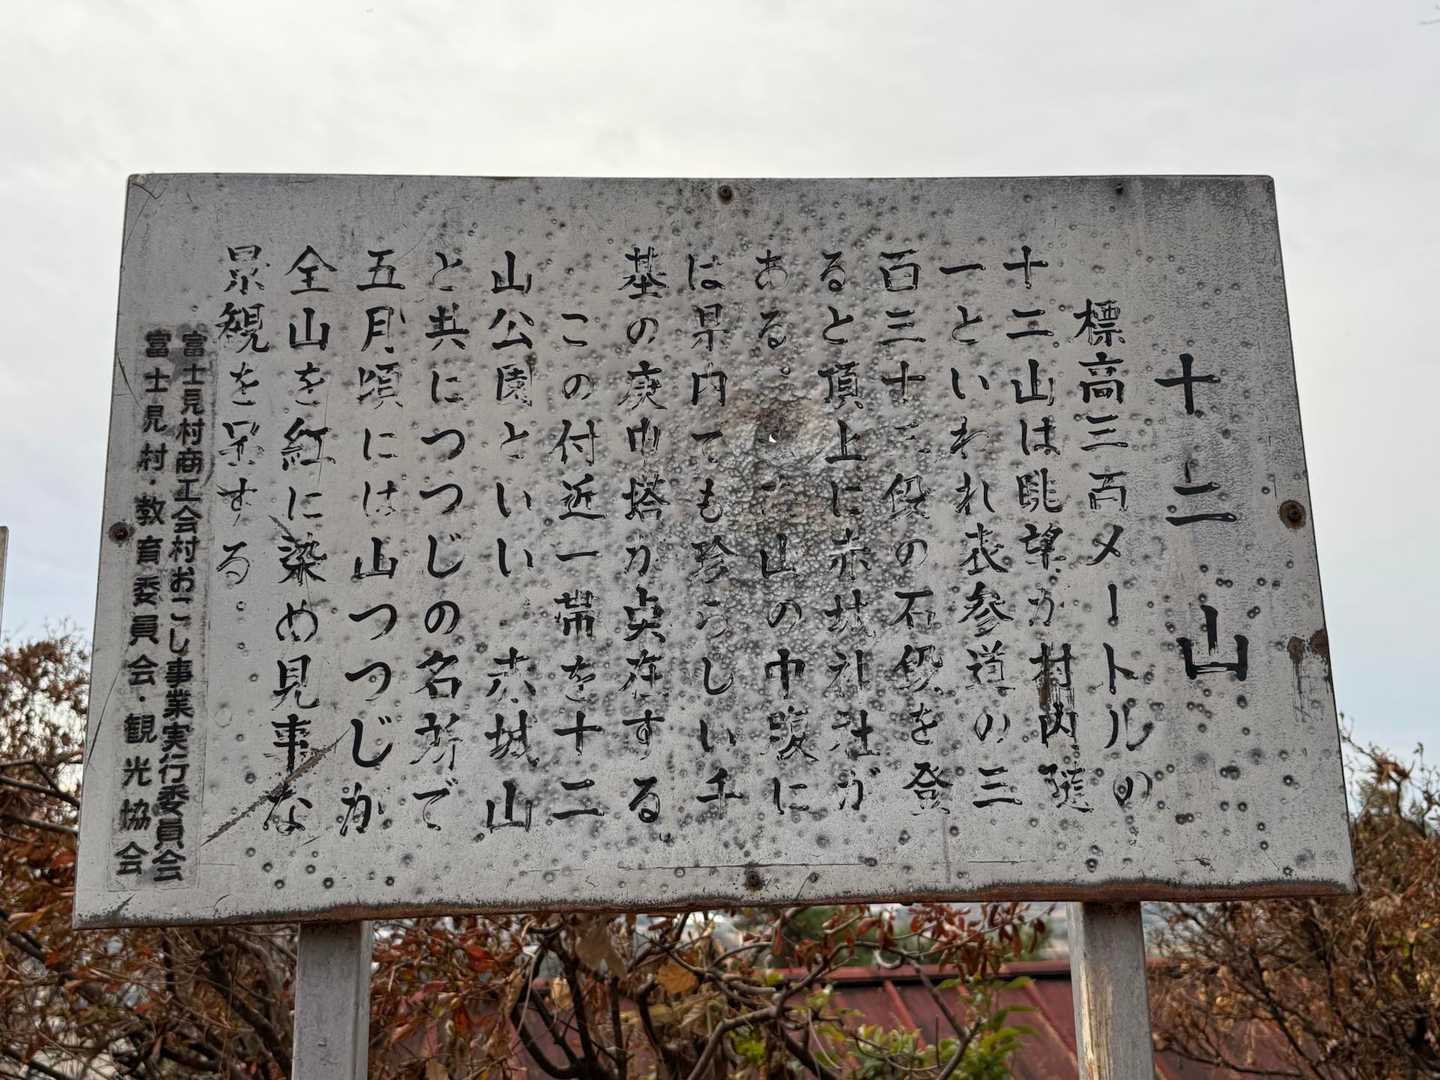 十二山
標高三百メートルの
十二山は眺望が村内随
一といわれ表参道の三
百三十三段の石段を登
ると頂上に赤城神社が
ある。 山の中腹に
は県内でも珍らしい千
基の庚申塔が点在する
この付近一帯を十二
山公園といい 赤城山
と共につつじの名所で
五月頃には山つつじが
全山を紅に染め見事な
景観を呈する。
富士見村商工会村おこし事業実行委員会
富士見村・教育委員会・観光協会